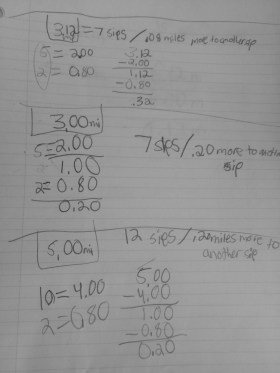 3.12 = 7 sips / .08 miles more to another sip
5 = 2.00
2 = 0.80
3.12
-2.00
1.12
-0.80
.32
3.00mi
5=2.00
1.00
2=0.80
0.20
7 sips / .20 more to another
sip
5.00mi
12 sips / .20 miles more to
another sip
10=4.00
2=0.80
5.00
-4.00
1.00
-0.80
0.20